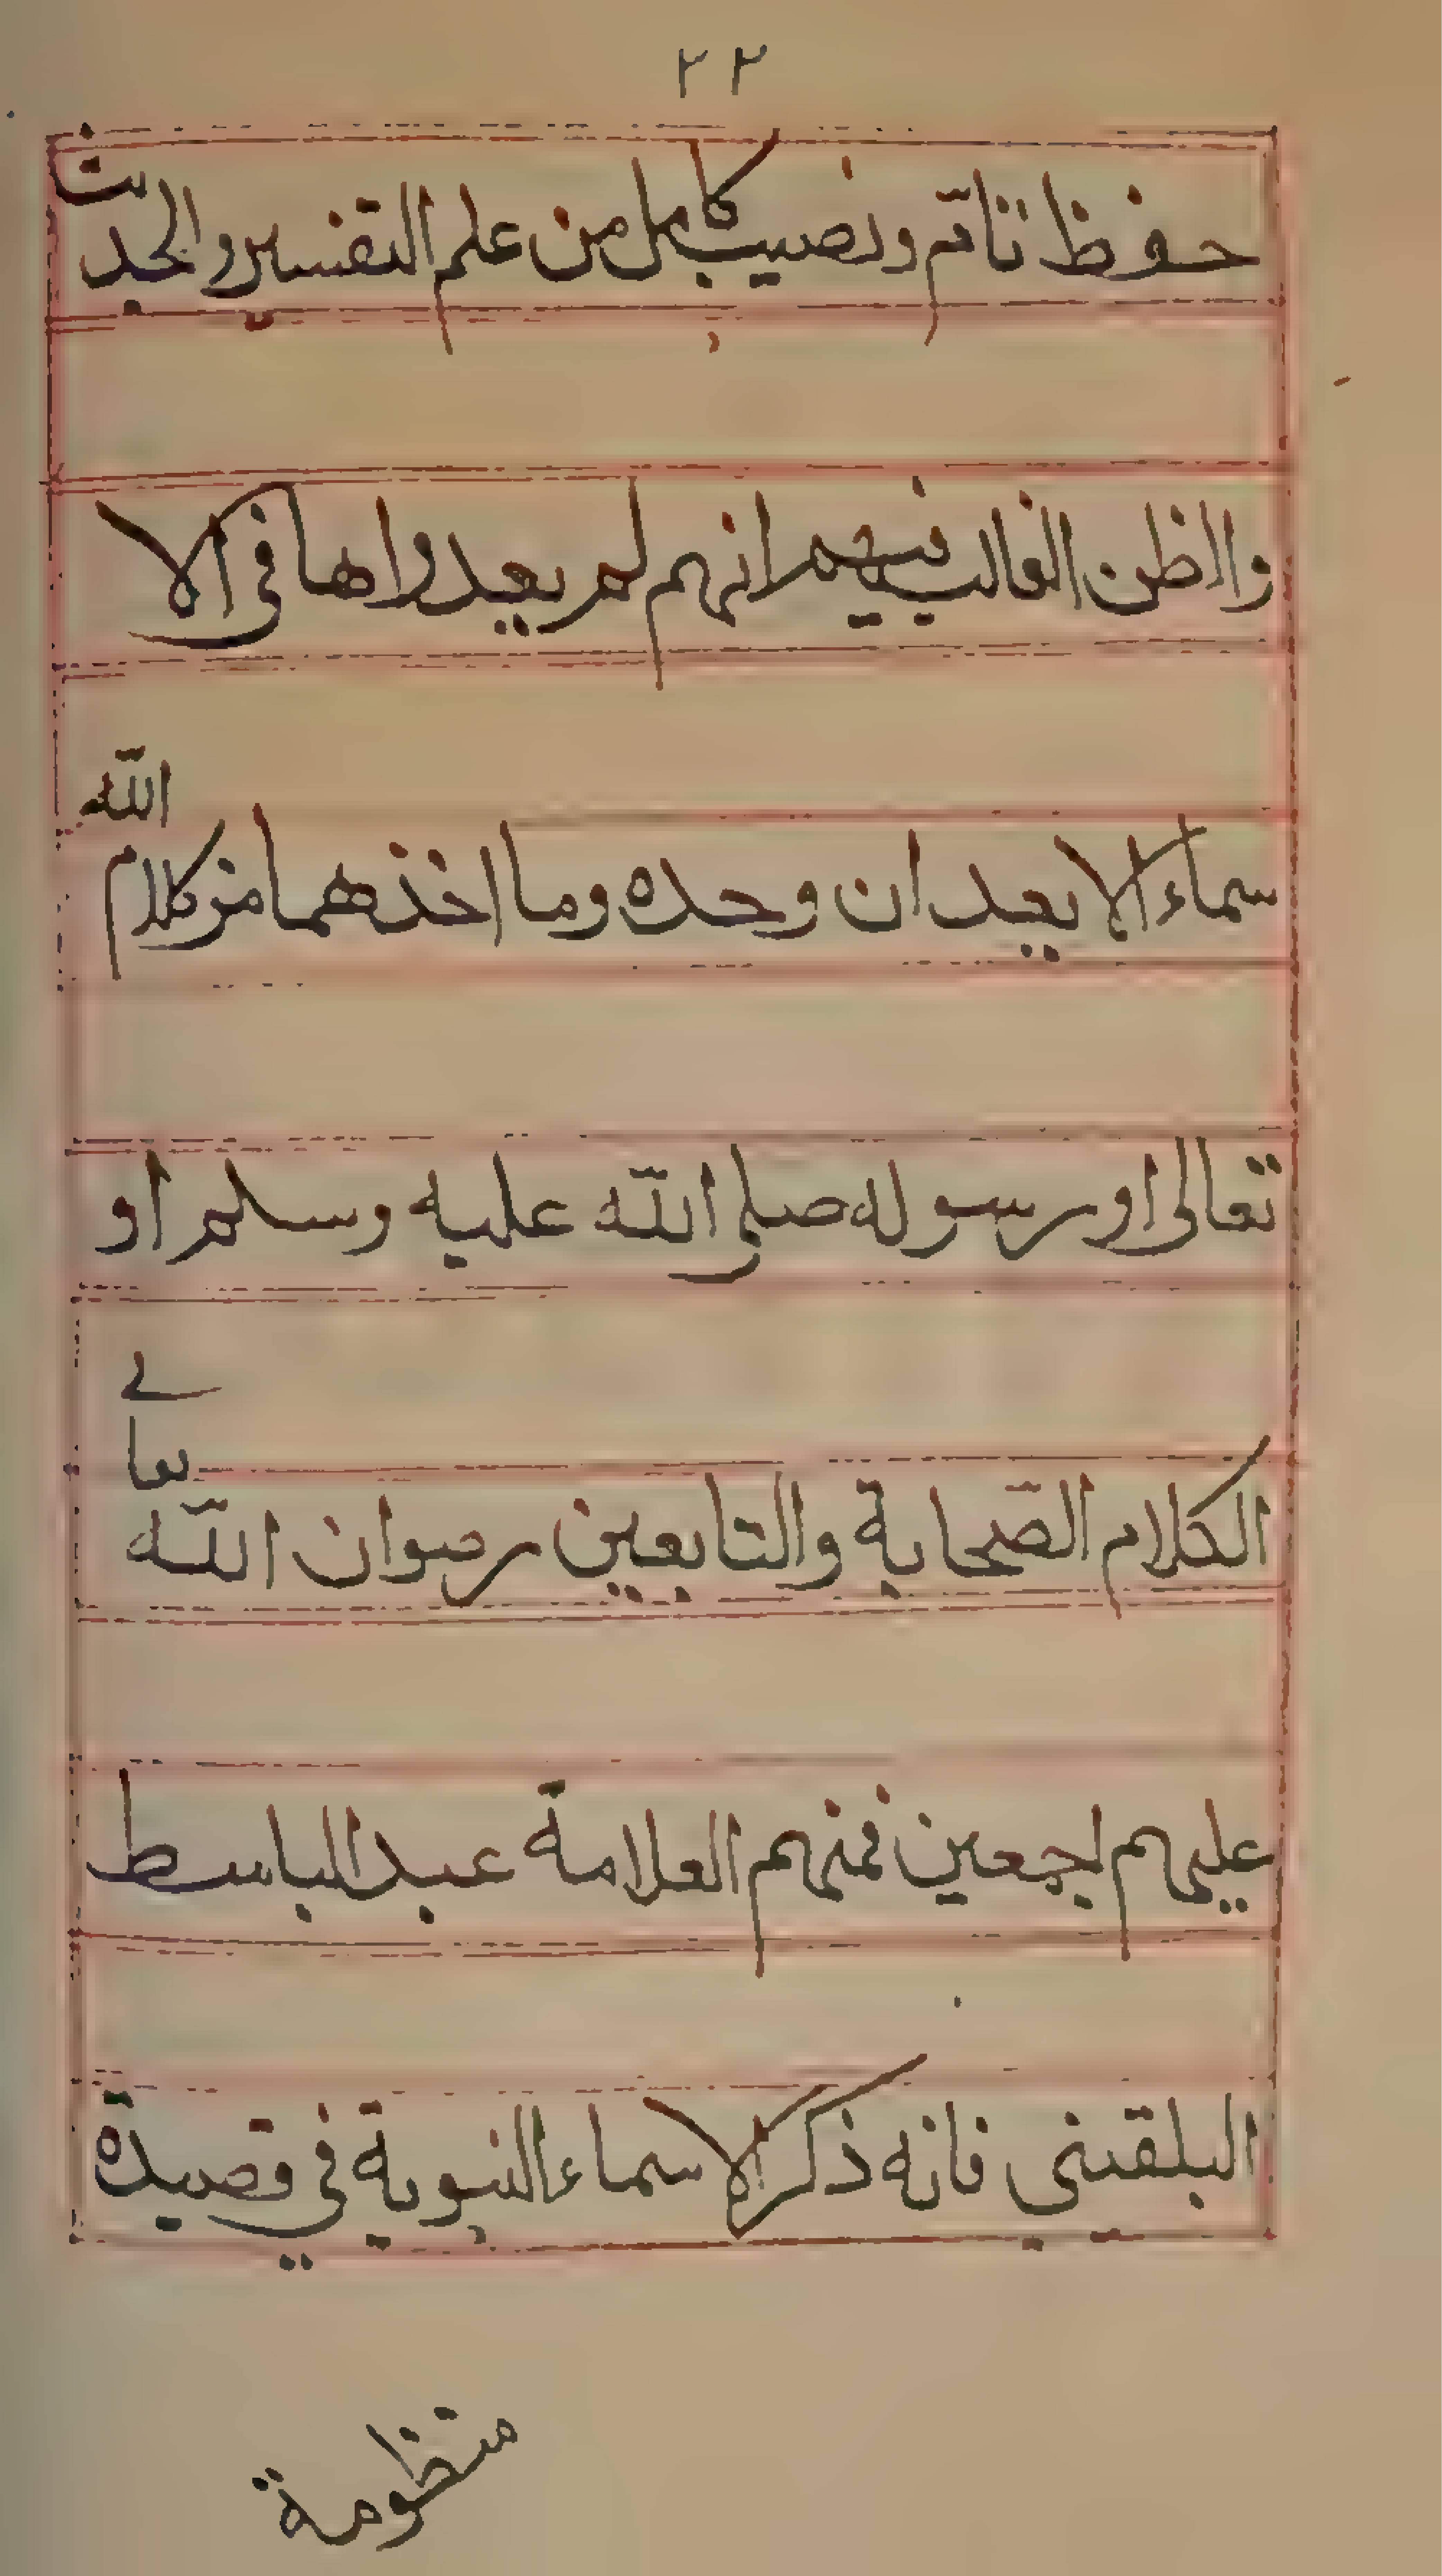 ٢٢
حفوظ تام ونصيب كامل من علم التفسير والحديث
والظن الغالب فيهم انهم لم يعدواها في الا
سماء الا بعد ان وحده وما اخذهما من كلام الله
تعالى او رسوله صلى الله عليه وسلم او
الكلام الصحابة والتابعين رضوان الله تعالى
عليهم اجمعين فمنهم العلامة عبد الباسط
البلقيني فانه ذكر الاسماء النبوية في قصيدة
منظومة